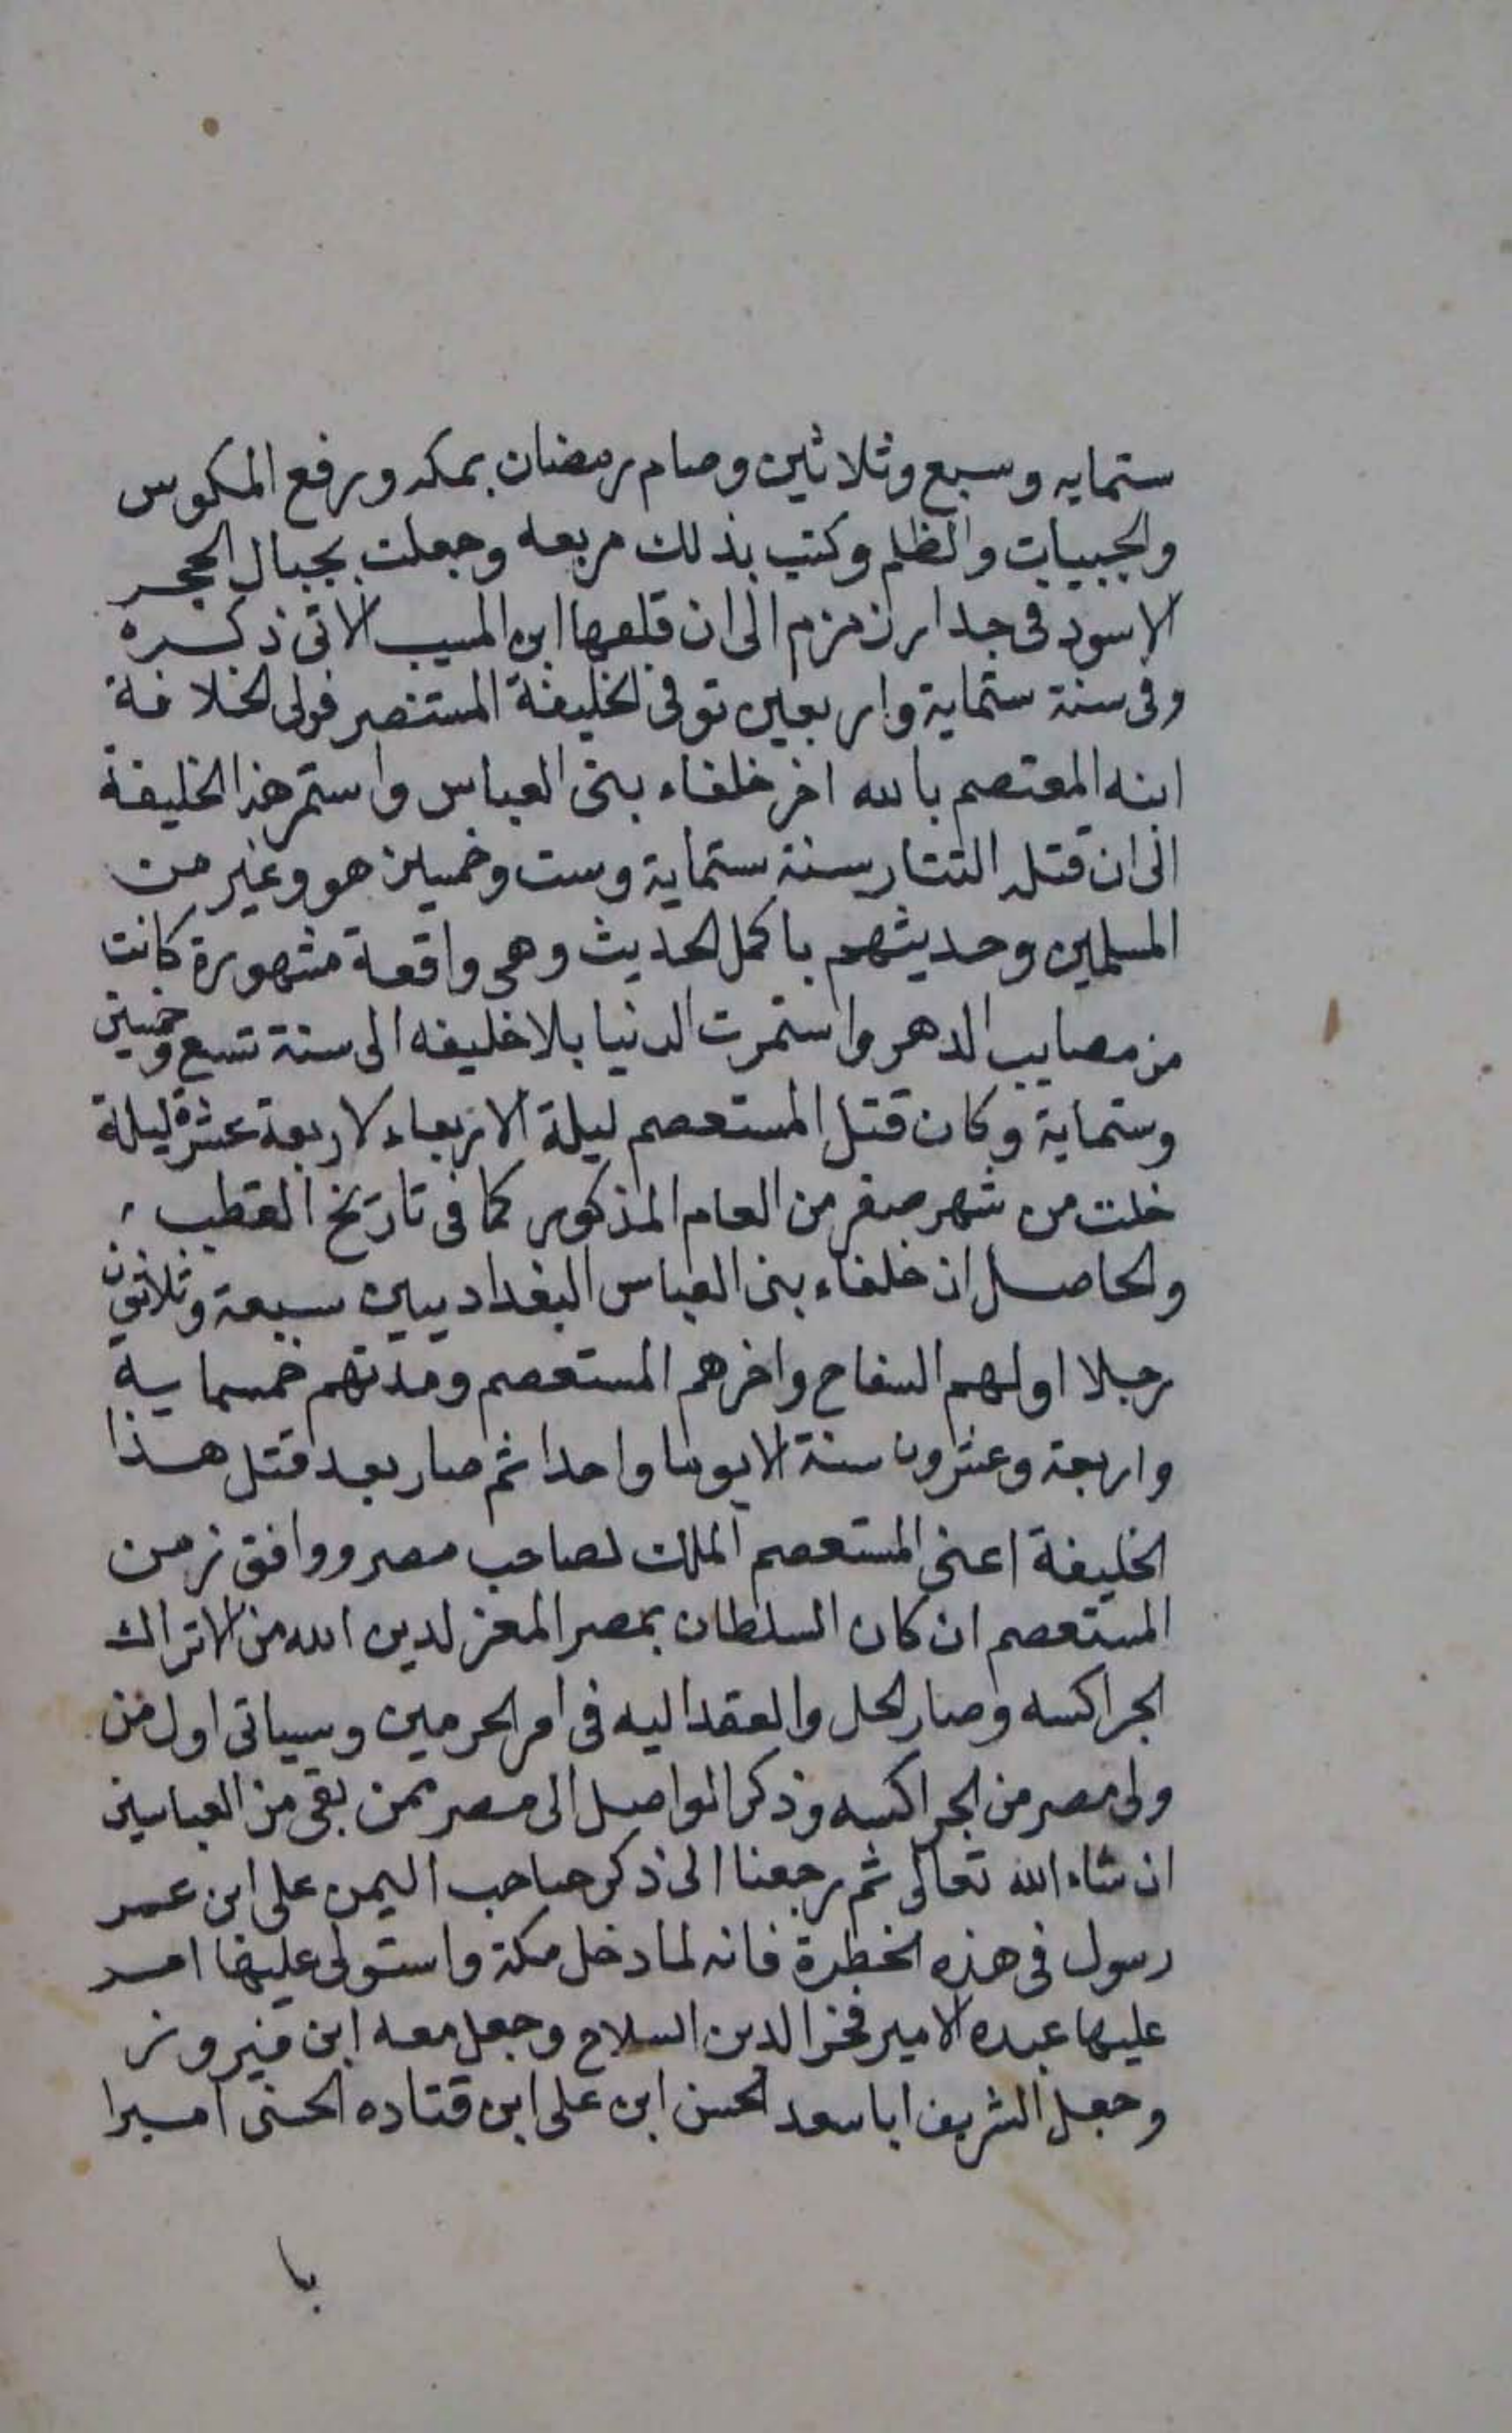 ستمايه وسبع وثلاثين وصام رمضان بمكه ورفع المكوس
والجبيات والظلم وكتب بذلك مربعه وجعلت بجبال الحجر
الاسود فى جدار زمزم الى ان قلعها ابن المسيب الاتى ذكره
وفى سنة ستماية واربعين توفى الخليفة المستنصر فولى الخلافة
ابنه المعتصم بالله اخر خلفاء بنى العباس واستمر هذا الخليفة
الى ان قتله التتار سنة ستماية وست وخمسين هو وغير من
المسلمين وحديثهم باكمل الحديث وهى واقعة مشهورة كانت
من مصايب الدهر واستمرت الدنيا بلا خليفه الى سنة تسع وخمسين
وستماية وكان قتل المستعصم ليلة الاربعاء لاربعة عشرة ليلة
خلت من شهر صفر من العام المذكور كما فى تاريخ القطب
والحاصل ان خلفاء بنى العباس البغداديين سبعة وثلاثون
رجلا اولهم السفاح واخرهم المستعصم ومدتهم خمسماية
واربعة وعشرون سنة الا يوما واحدا ثم صار بعد قتل هذا
الخليفة اعنى المستعصم الملك لصاحب مصر ووافق زمن
المستعصم ان كان السلطان بمصر المعز لدين الله من الاتراك
الجراكسه وصار الحل والعقد اليه فى امر الحرمين وسياتى اول من
ولى مصر من الجراكسه وذكر الواصل الى مصر ممن بقى من العباسين
ان شاء الله تعالى ثم رجعنا الى ذكر صاحب اليمن على ابن عمر
رسول فى هذه الخطرة فانه لما دخل مكة واستولى عليها امر
عليها عبده الامير فخر الدين السلاح وجعل معه ابن فيروز
وجعل الشريف ابا سعد الحسن ابن على ابن قتاده الحسنى اميرا
با